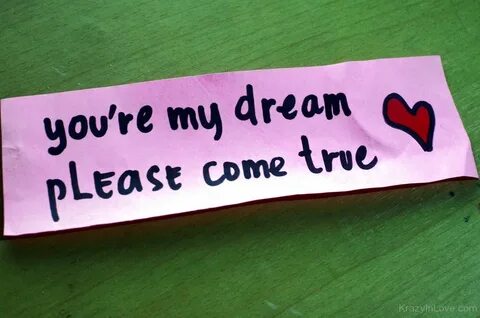 you're my dream
pLEASE come true
KrazyInLove.com